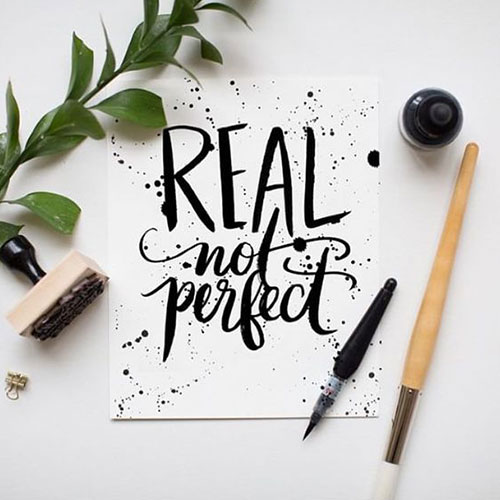 REAL
not
perfect